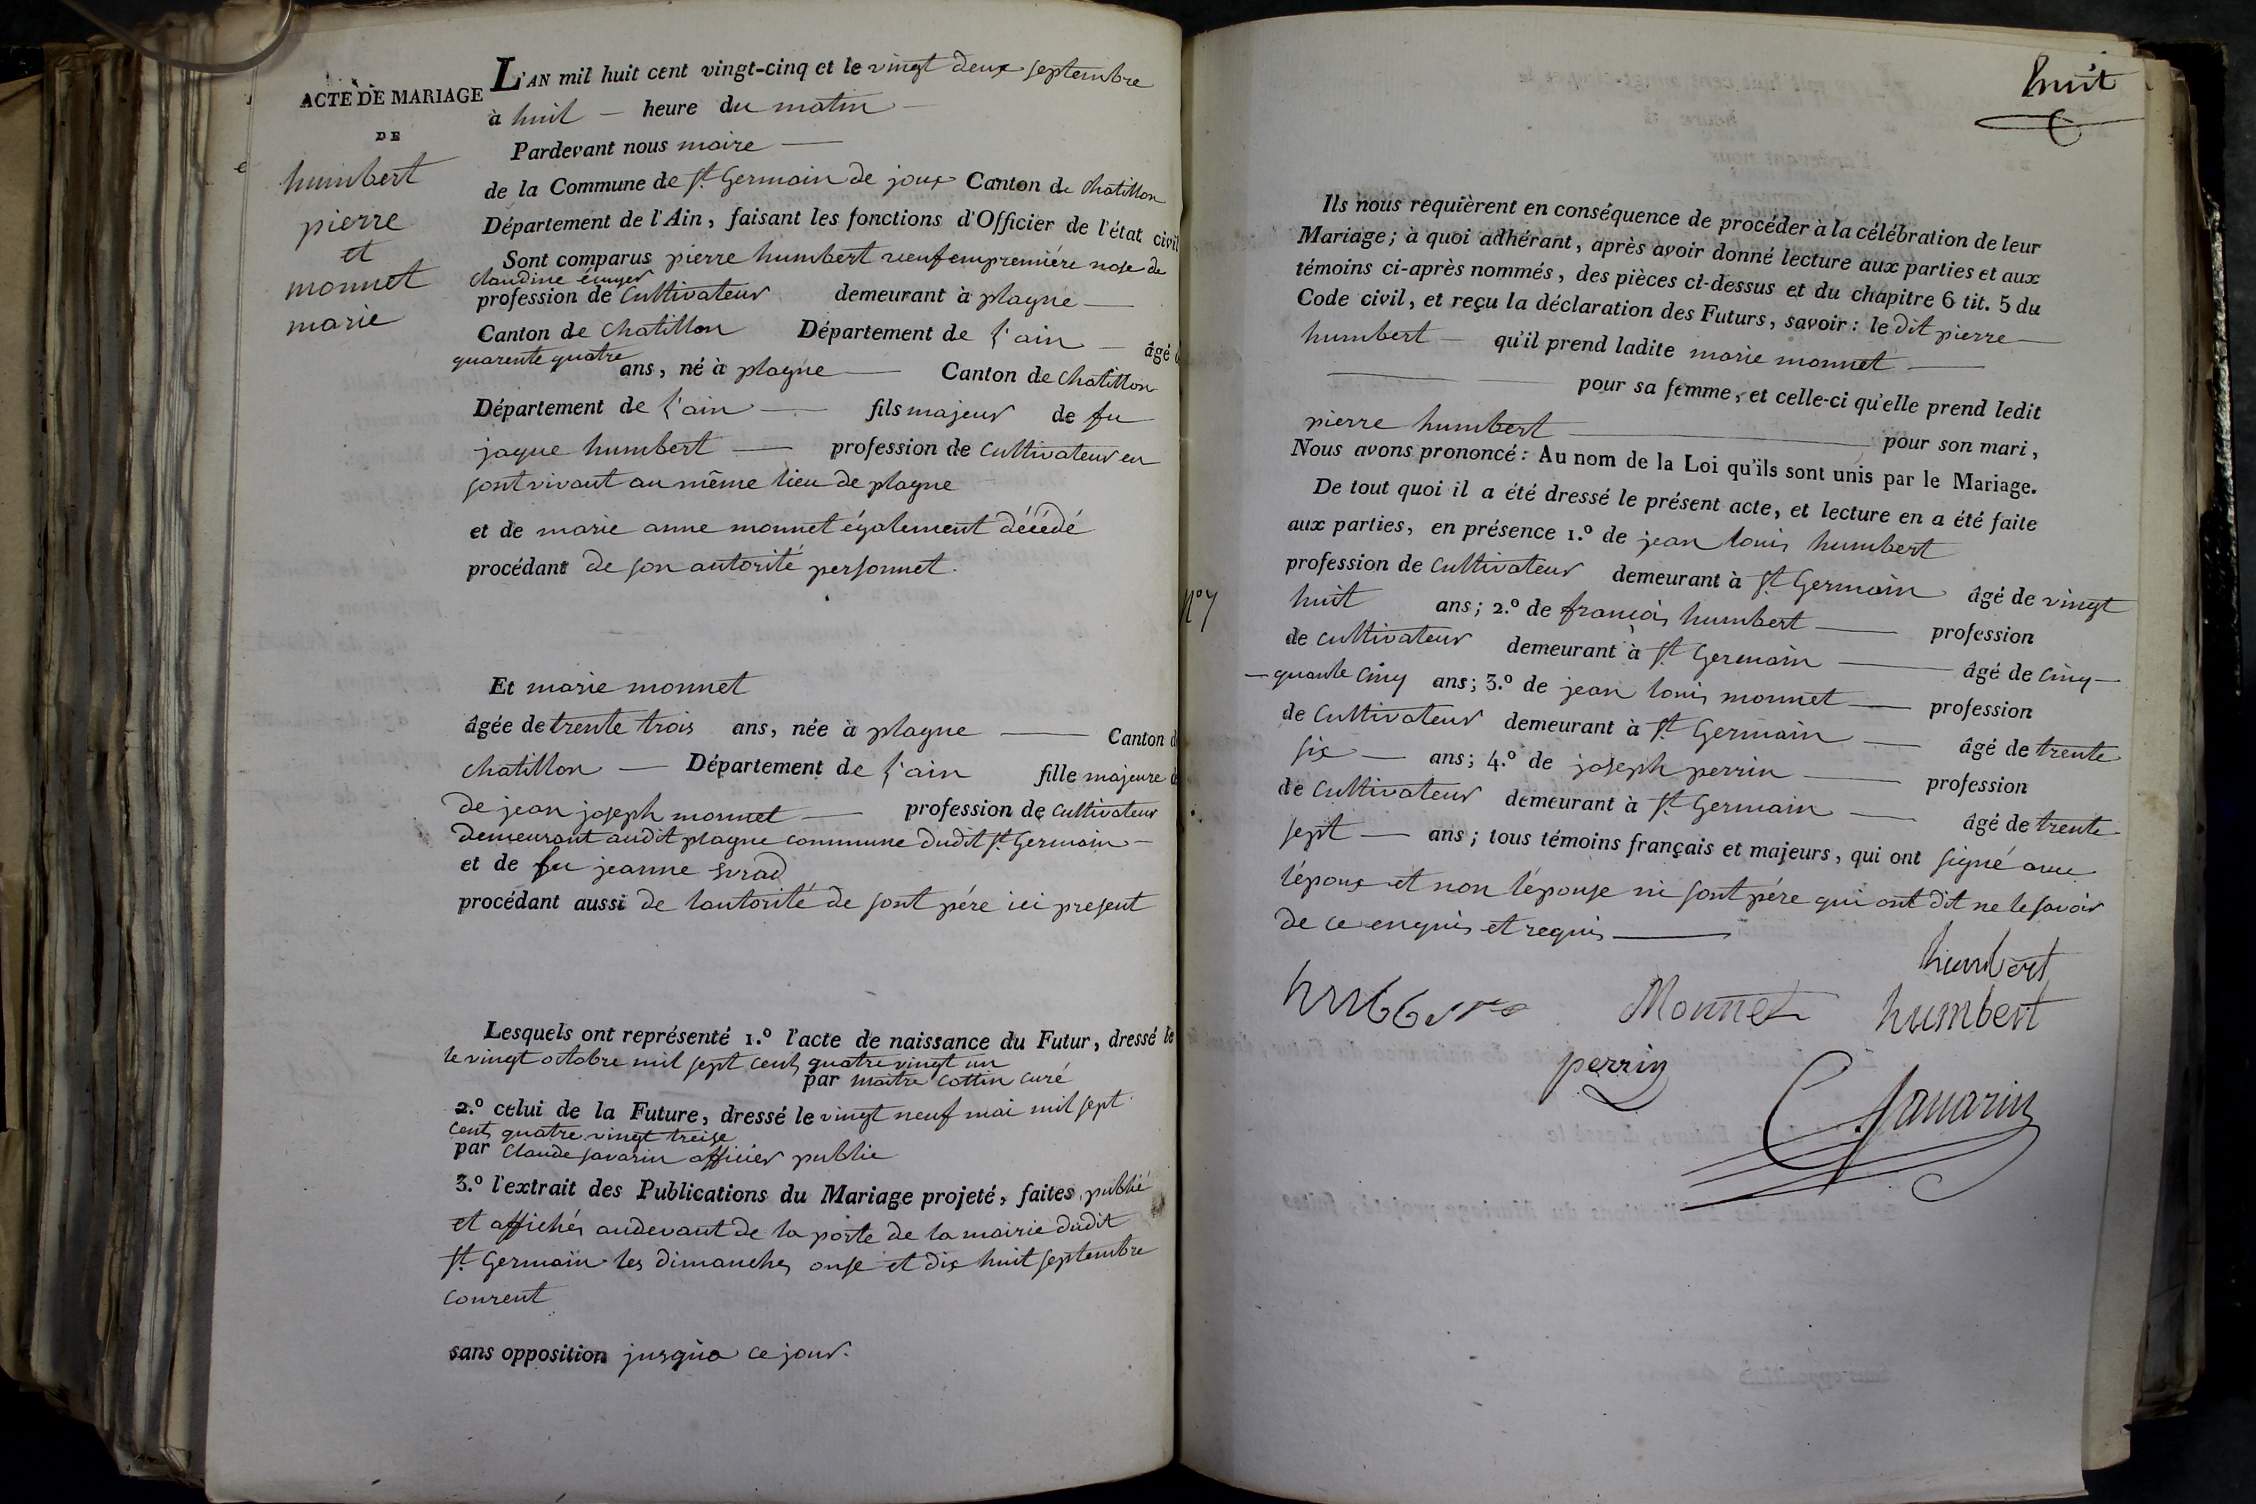 ACTE DE MARIAGE
DE
humbert
pierre
et
monnet
marie
L'AN mil huit cent vingt-cinq et le vingt deux septembre
à huit heure du matin
Pardevant nous maire
de la Commune de St. Germain de joux Canton de chatillon
Département de l'Ain, faisant les fonctions d'Officier de l'état civil
Sont comparus pierre humbert veuf en premiére nose de
claudine
profession de cultivateur demeurant à plagne
Canton de chatillon Département de l'ain âgé
quarente quatre ans, né à plagne Canton de chatillon
Département de l'ain fils majeur de fu
jaque humbert profession de cultivateur en
sont vivant au même lieu de plagne
et de marie anne monnet également décédé
procédant de son autorité personnel.
Et marie monnet
âgée de trente trois ans, née à plagne Canton de
chatillon Département de l'ain fille majeure de
de jean joseph monnet profession de cultivateur
demeurant audit plagne commune dudit St. Germain
et de fu jeanne
procédant aussi de lautorité de sont pére ici present
Lesquels ont représenté 1.º l'acte de naissance du Futur, dressé le
le vingt octobre mil sept cents quatre vingt un
par maitre cottin curé
2.º celui de la Future, dressé le vingt neuf mai mil sept
cents quatre vingt treise
par claude savarin officier public
3.º l'extrait des Publications du Mariage projeté, faites, publié
et affichés audevant de la porte de la mairie dudit
St. Germain les dimanches onse et dix huit septembre
courent
sans opposition jusqua ce jour.
nº 7
huit
Ils nous requièrent en conséquence de procéder à la célébration de leur
Mariage; à quoi adhérant, après avoir donné lecture aux parties et aux
témoins ci-après nommés, des pièces ci-dessus et du chapitre 6 tit. 5 du
Code civil, et reçu la déclaration des Futurs, savoir: le dit pierre
humbert qu'il prend ladite marie monnet
pour sa femme, et celle-ci qu'elle prend ledit
pierre humbert pour son mari,
Nous avons prononcé: Au nom de la Loi qu'ils sont unis par le Mariage.
De tout quoi il a été dressé le présent acte, et lecture en a été faite
aux parties, en présence 1.º de jean louis humbert
profession de cultivateur demeurant à St. Germain âgé de vingt
huit ans; 2.º de françois humbert profession
de cultivateur demeurant à St. Germain âgé de cinq-
-quante cinq ans; 3.º de jean louis monnet profession
de cultivateur demeurant à St. Germain âgé de trente
six ans; 4.º de joseph perrin profession
de cultivateur demeurant à St. Germain âgé de trente
sept ans; tous témoins français et majeurs, qui ont signé avec
lépoux et non lépouse ni sont pére qui ont dit ne le savoir
de ce enquis et requis
humbert
Monnet humbert
perrin